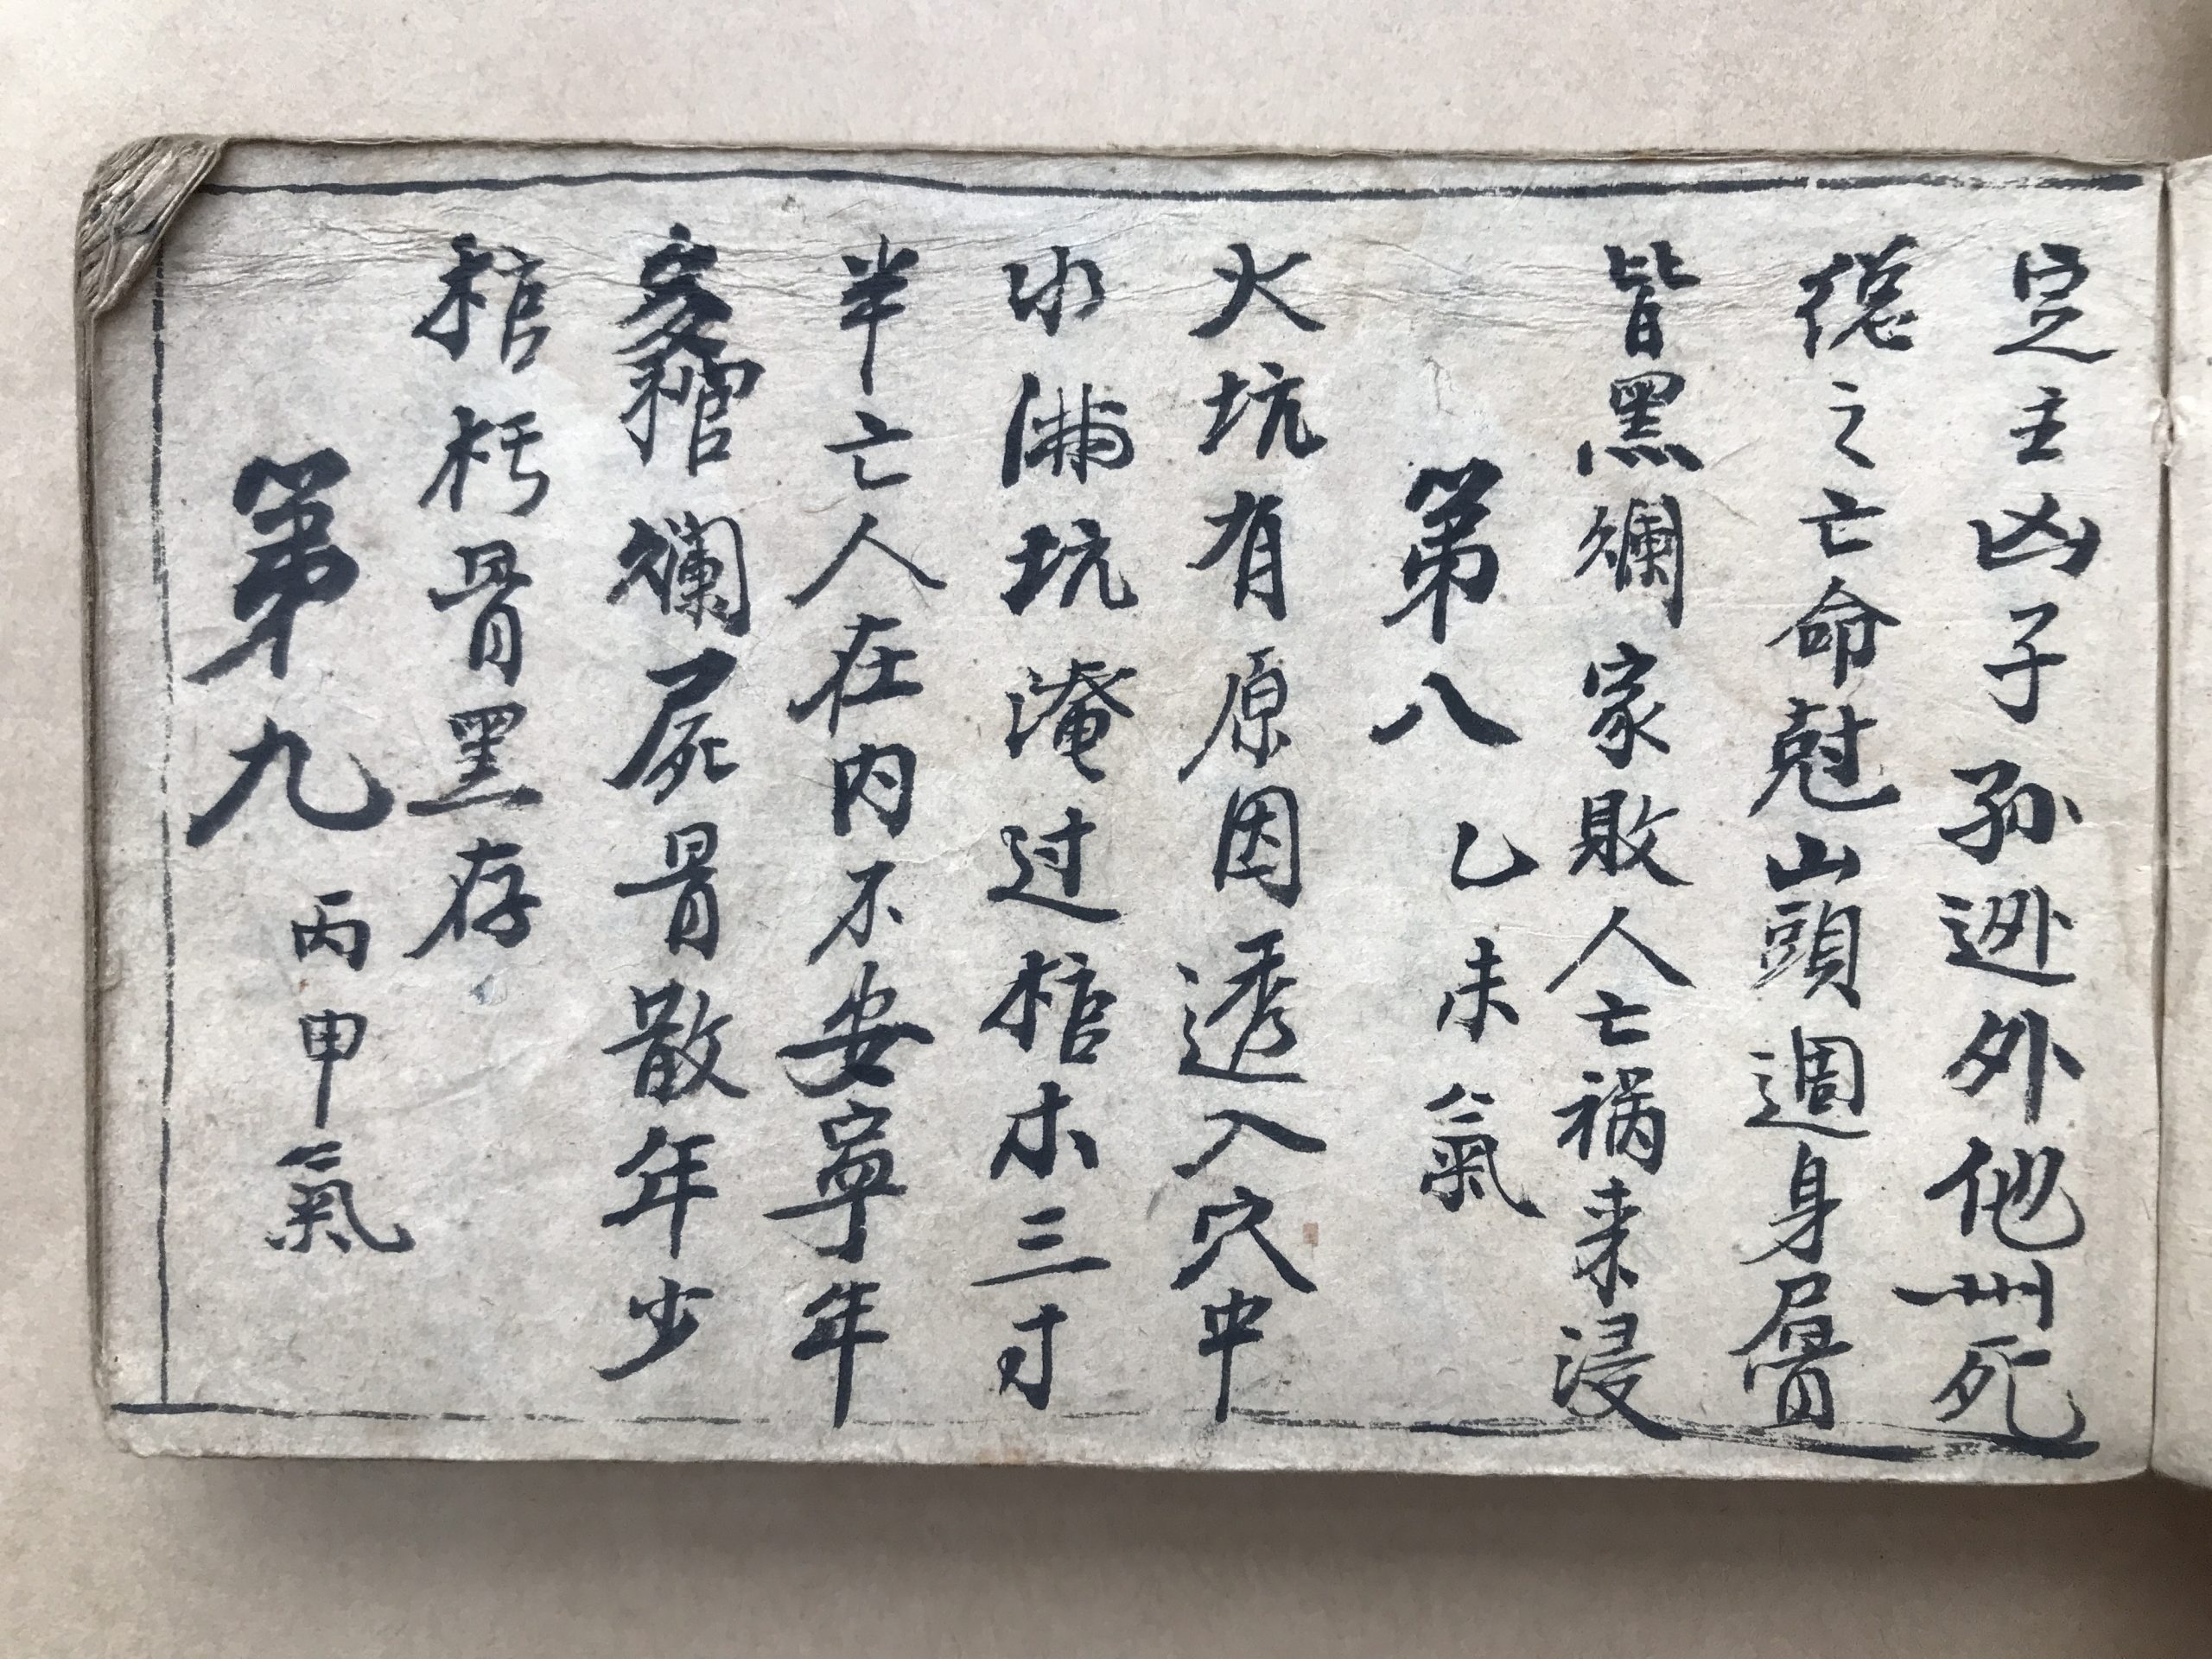 定主凶子孙迯外他州死
总之亡命尅山頭週身屑
皆黑爛家敗人亡祸来浸
第八 乙未氣
火坑有原因透入穴中
水满坑淹过棺木三寸
半亡人在内不安寧年
爛屍骨散年少
棺朽骨黑存
第九 丙申氣